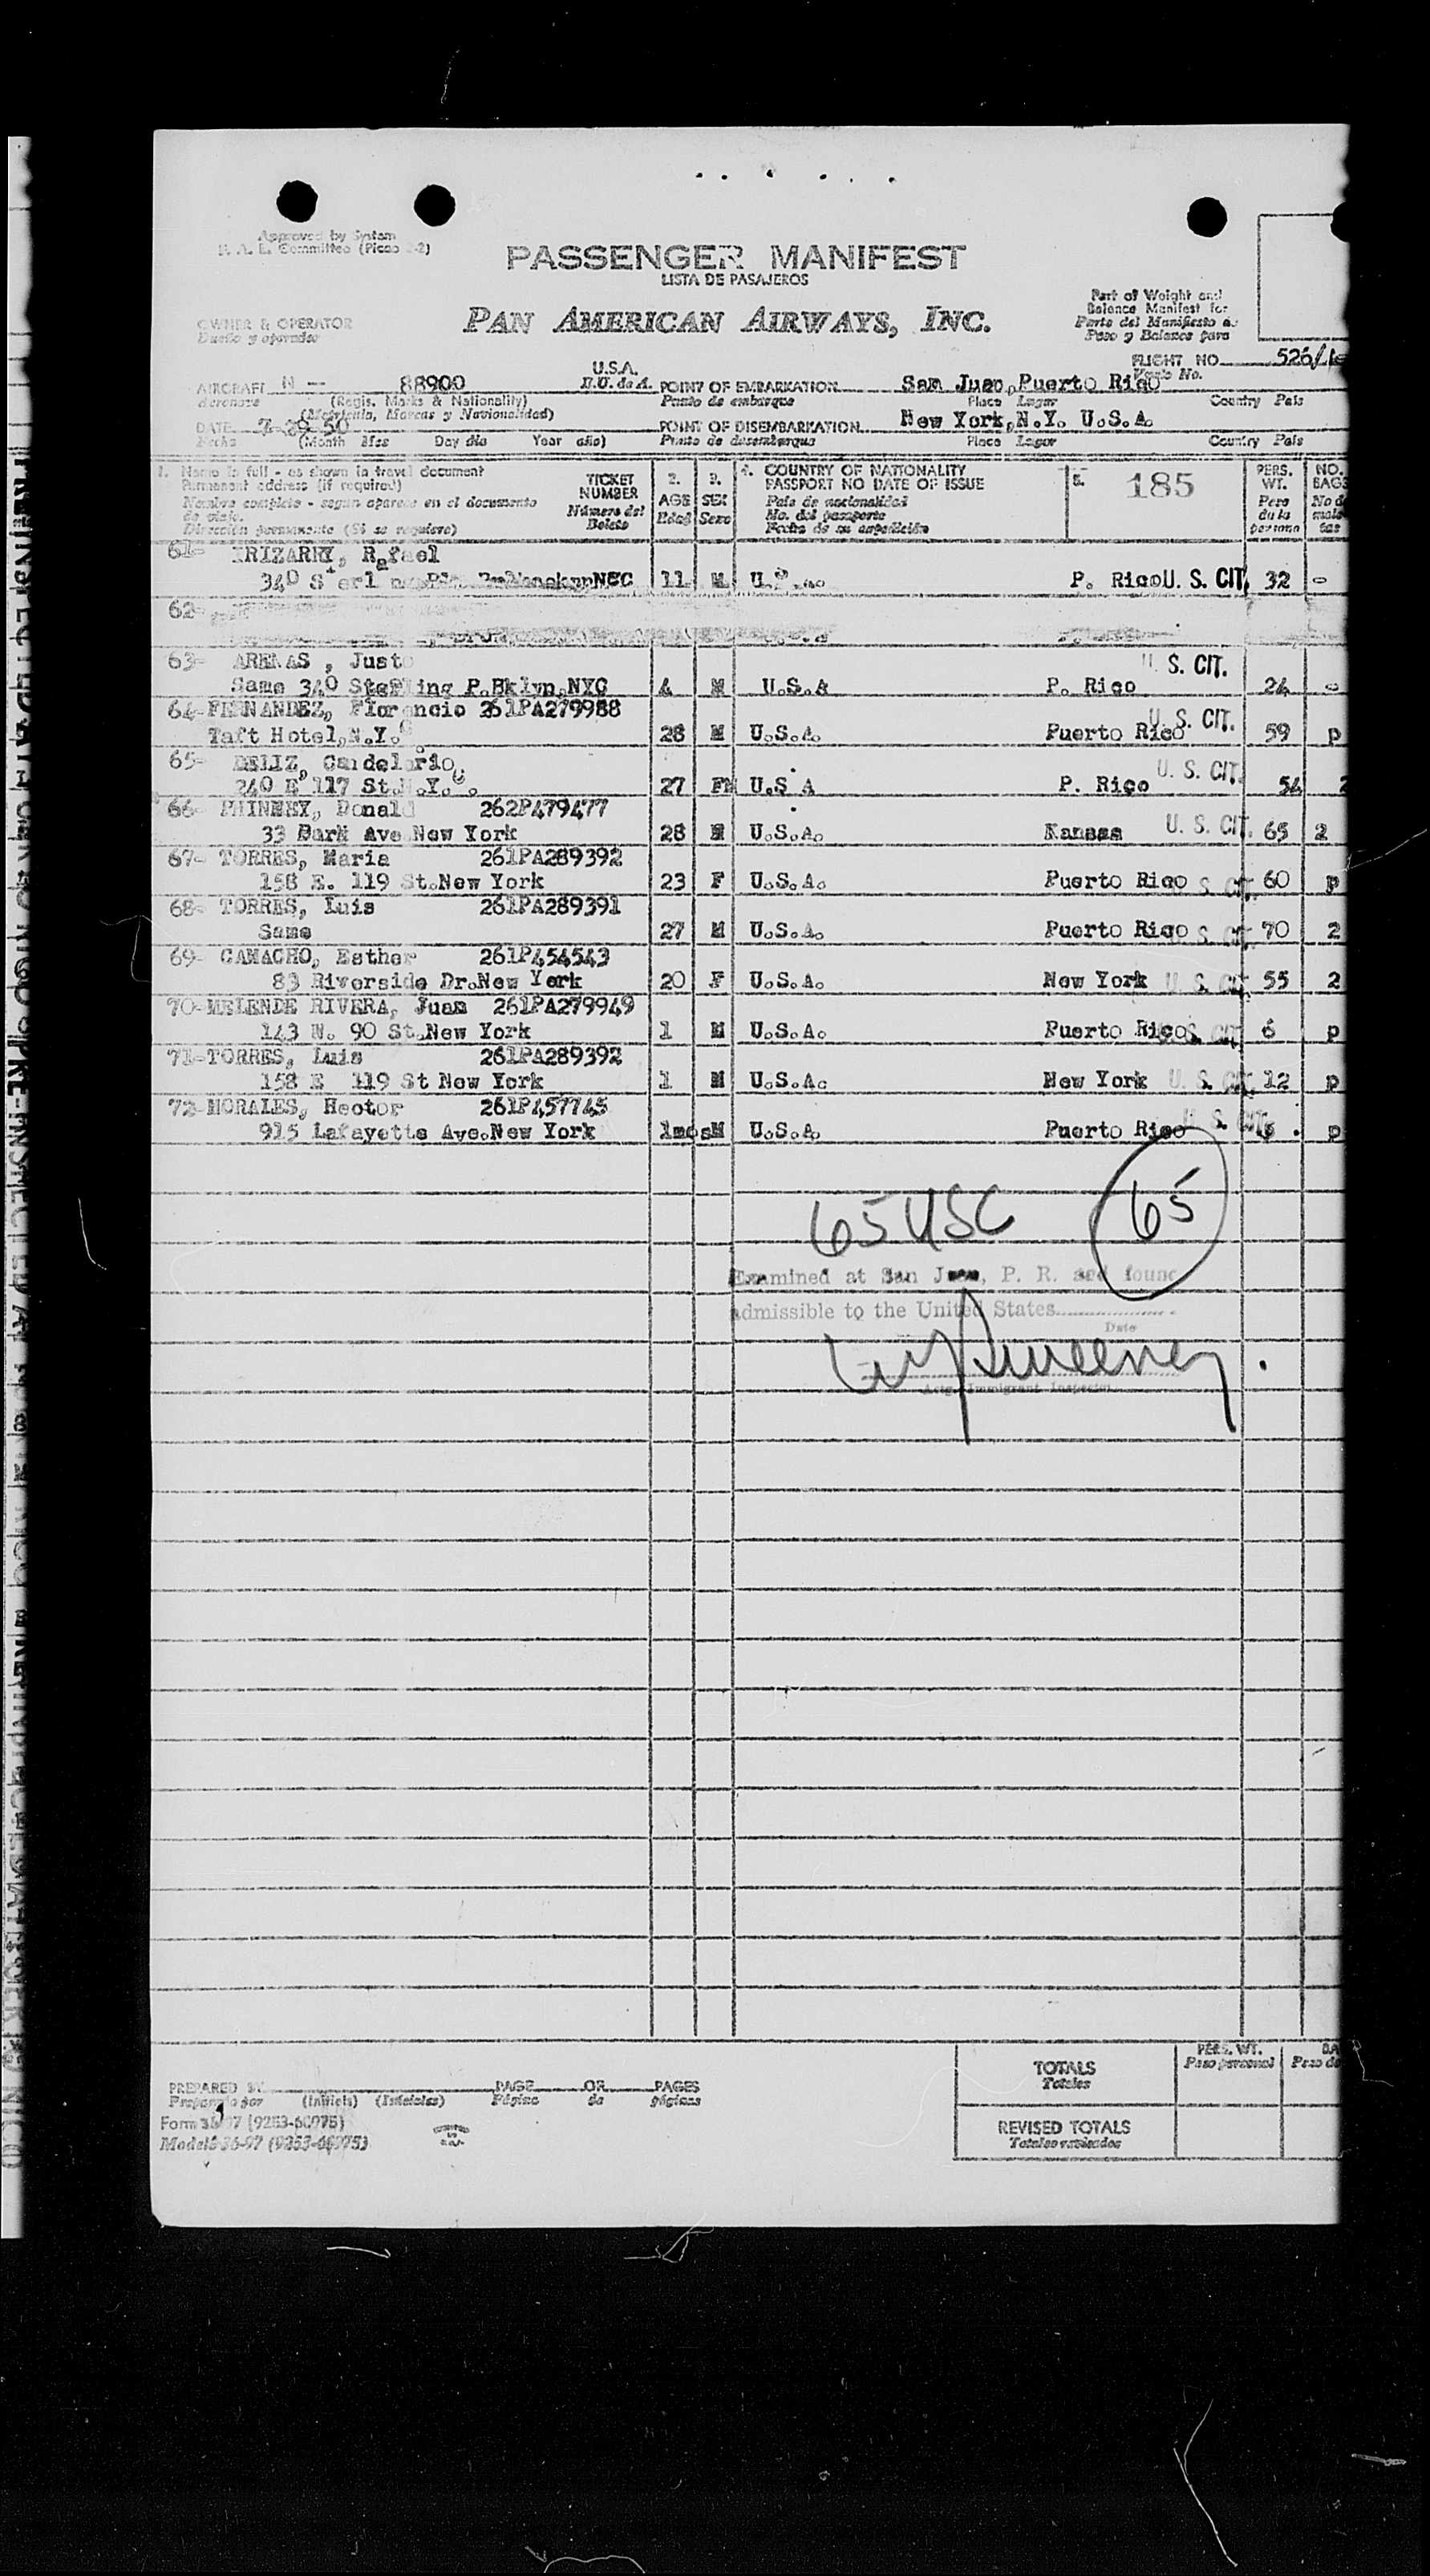 Approved by System
Committee (Picao -2)
PASSENGER MANIFEST
LISTA DE PASAJEROS
OWNER & OPERATOR
Dueño y operador
PAN AMERICAN AIRWAYS, INC.
Part of Weight and
Balance Manifest for
Parte del Manifiesto de
Peso y Balance para
FLIGHT NO. 526/
Vuelo No.
AIRCRAFT N - 88900 U.S.A. POINT OF EMBARKATION San Juan, Puerto Rico
Aeronave (Regis. Marks & Nationality) E.U. de A. Punto de embarque Place Lugar Country Pais
(Matricula, Marcas y Nacionalidad)
DATE 7-29-50 POINT OF DISEMBARKATION New York, N.Y. U.S.A.
Fecha (Month Mes Day dia Year año) Punto de desembarque Place Lugar Country Pais
1. Name in full - as shown in travel document
Permanent address (if required)
Nombre completo - segun aparece en el documento
de viaje.
Dirección permanente (Si se requiere)
TICKET NUMBER
Número del Boleto
2. AGE Edad
3. SEX Sexo
4. COUNTRY OF NATIONALITY
PASSPORT NO DATE OF ISSUE
Pais de nacionalidad
No. del pasaporte
Fecha de su expedición
5. 185
PERS. WT.
Peso de la persona
NO. BAGS
61- IRIZARRY, Rafael
340 11 M P. Rico U. S. CIT. 32 -
62-
63- ARENAS , Justo U. S. CIT.
Same 340 Sterling P.Bklyn,NYC 4 M U.S.A P. Rico 24 -
64-FERNANDEZ, Florencio 261PA279988 U. S. CIT.
Taft Hotel,N.Y. 28 M U.S.A. Puerto Rico 59 p
65- DELIZ, Candelario U. S. CIT.
240 E 117 St.N.Y. 27 U.S A P. Rico 54 2
66- PHINNEY, Donald 262P479477
33 Park Ave New York 28 M U.S.A. Kansas U. S. CIT. 65 2
67- TORRES, Maria 261PA289392
158 E. 119 St.New York 23 F U.S.A. Puerto Rico U. S. CIT. 60 p
68- TORRES, Luis 261PA289391
Same 27 M U.S.A. Puerto Rico U. S. CIT. 70 2
69- CAMACHO, Esther 261P454543
83 Riverside Dr.New York 20 F U.S.A. New York U. S. CIT. 55 2
70-MELENDE RIVERA, Juan 261PA279949
143 W. 90 St.New York 1 M U.S.A. Puerto Rico U. S. CIT. 6 p
71-TORRES, Luis 261PA289392
158 E 119 St New York 1 M U.S.A. New York U. S. CIT. 12 p
72-MORALES, Hector 261P457745
915 Lafayette Ave.New York 1mos M U.S.A. Puerto Rico U. S. CIT. p
65 USC 65
Examined at San Juan, P. R. and found
admissible to the United States
Date
Sweeney
Actg. Immigrant Inspector
PREPARED BY PAGE OF PAGES
Preparado por (Initials) (Iniciales) Página de páginas
Form 36-97 (9253-60975)
Modelo 36-97 (9253-60975)
TOTALS
Totales
PERS. WT.
Peso personal
Peso de
REVISED TOTALS
Totales revisados